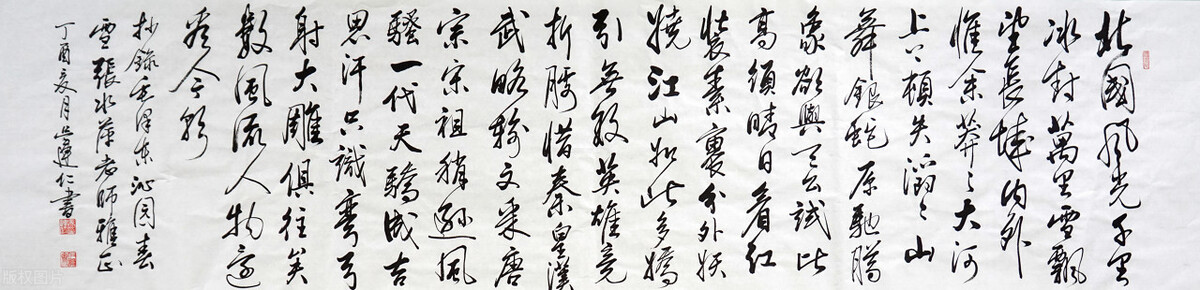 北國風光千里
冰封萬里雪飄
望長城内外
惟余莽々大河
上下頓失滔々山
舞銀蛇原馳臘
象欲與天公試比
高須晴日看紅
裝素裹分外妖
嬈江山如此多嬌
引無數英雄競
折腰惜秦皇漢
武略輸文采唐
宗宋祖稍遜風
騷一代天驕成吉
思汗只識彎弓
射大雕俱往矣
數風流人物還
看今朝
抄錄毛澤東沁園春
雪張水萍老師雅正
丁酉夏月建仁書
版权图片